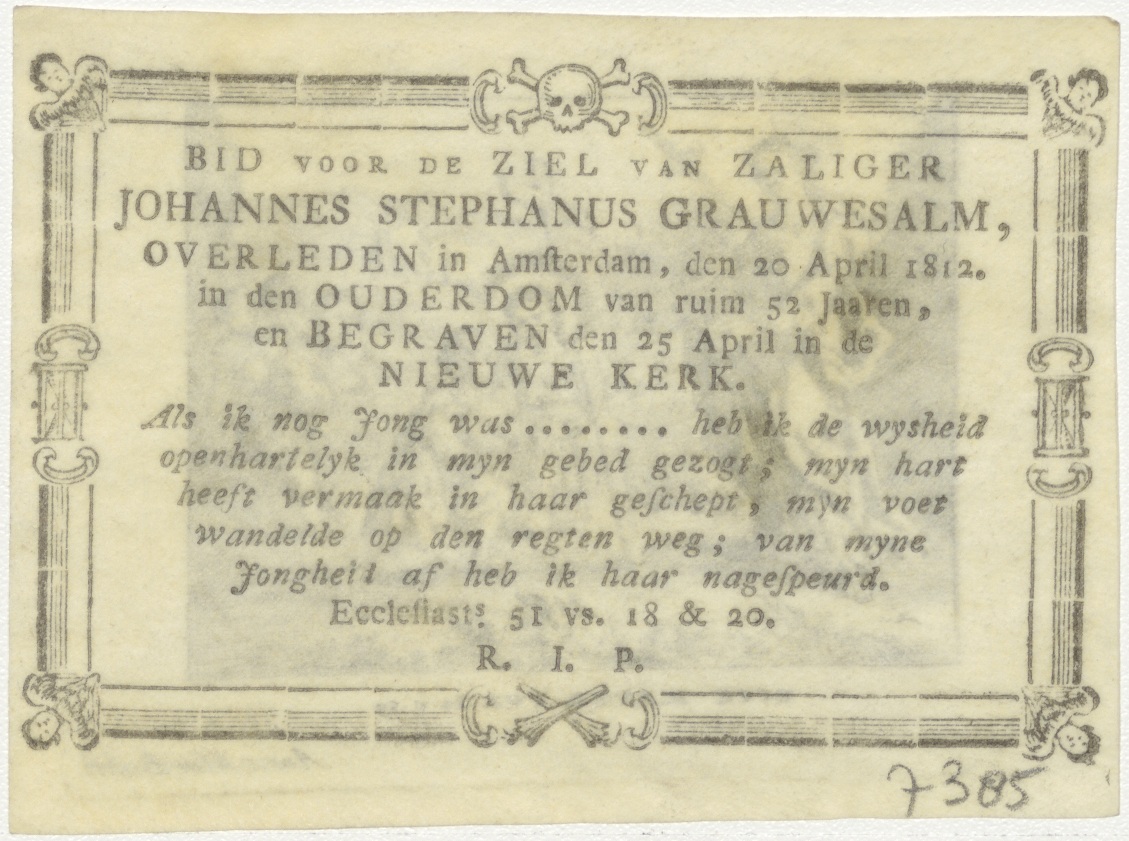 BID VOOR DE ZIEL VAN ZALIGER
JOHANNES STEPHANUS GRAUWESALM,
OVERLEDEN in Amſterdam, den 20 April 1812.
in den OUDERDOM van ruim 52 Jaaren,
en BEGRAVEN den 25 April in de
NIEUWE KERK.
Als ik nog Jong was ........ heb ik de wysheid
openhartelyk in myn gebed gezogt; myn hart
heeft vermaak in haar geſchept, myn voet
wandelde op den regten weg; van myne
Jongheit af heb ik haar nageſpeurd.
Eccleſiasts. 51 vs. 18 & 20.
R. I. P.
7385